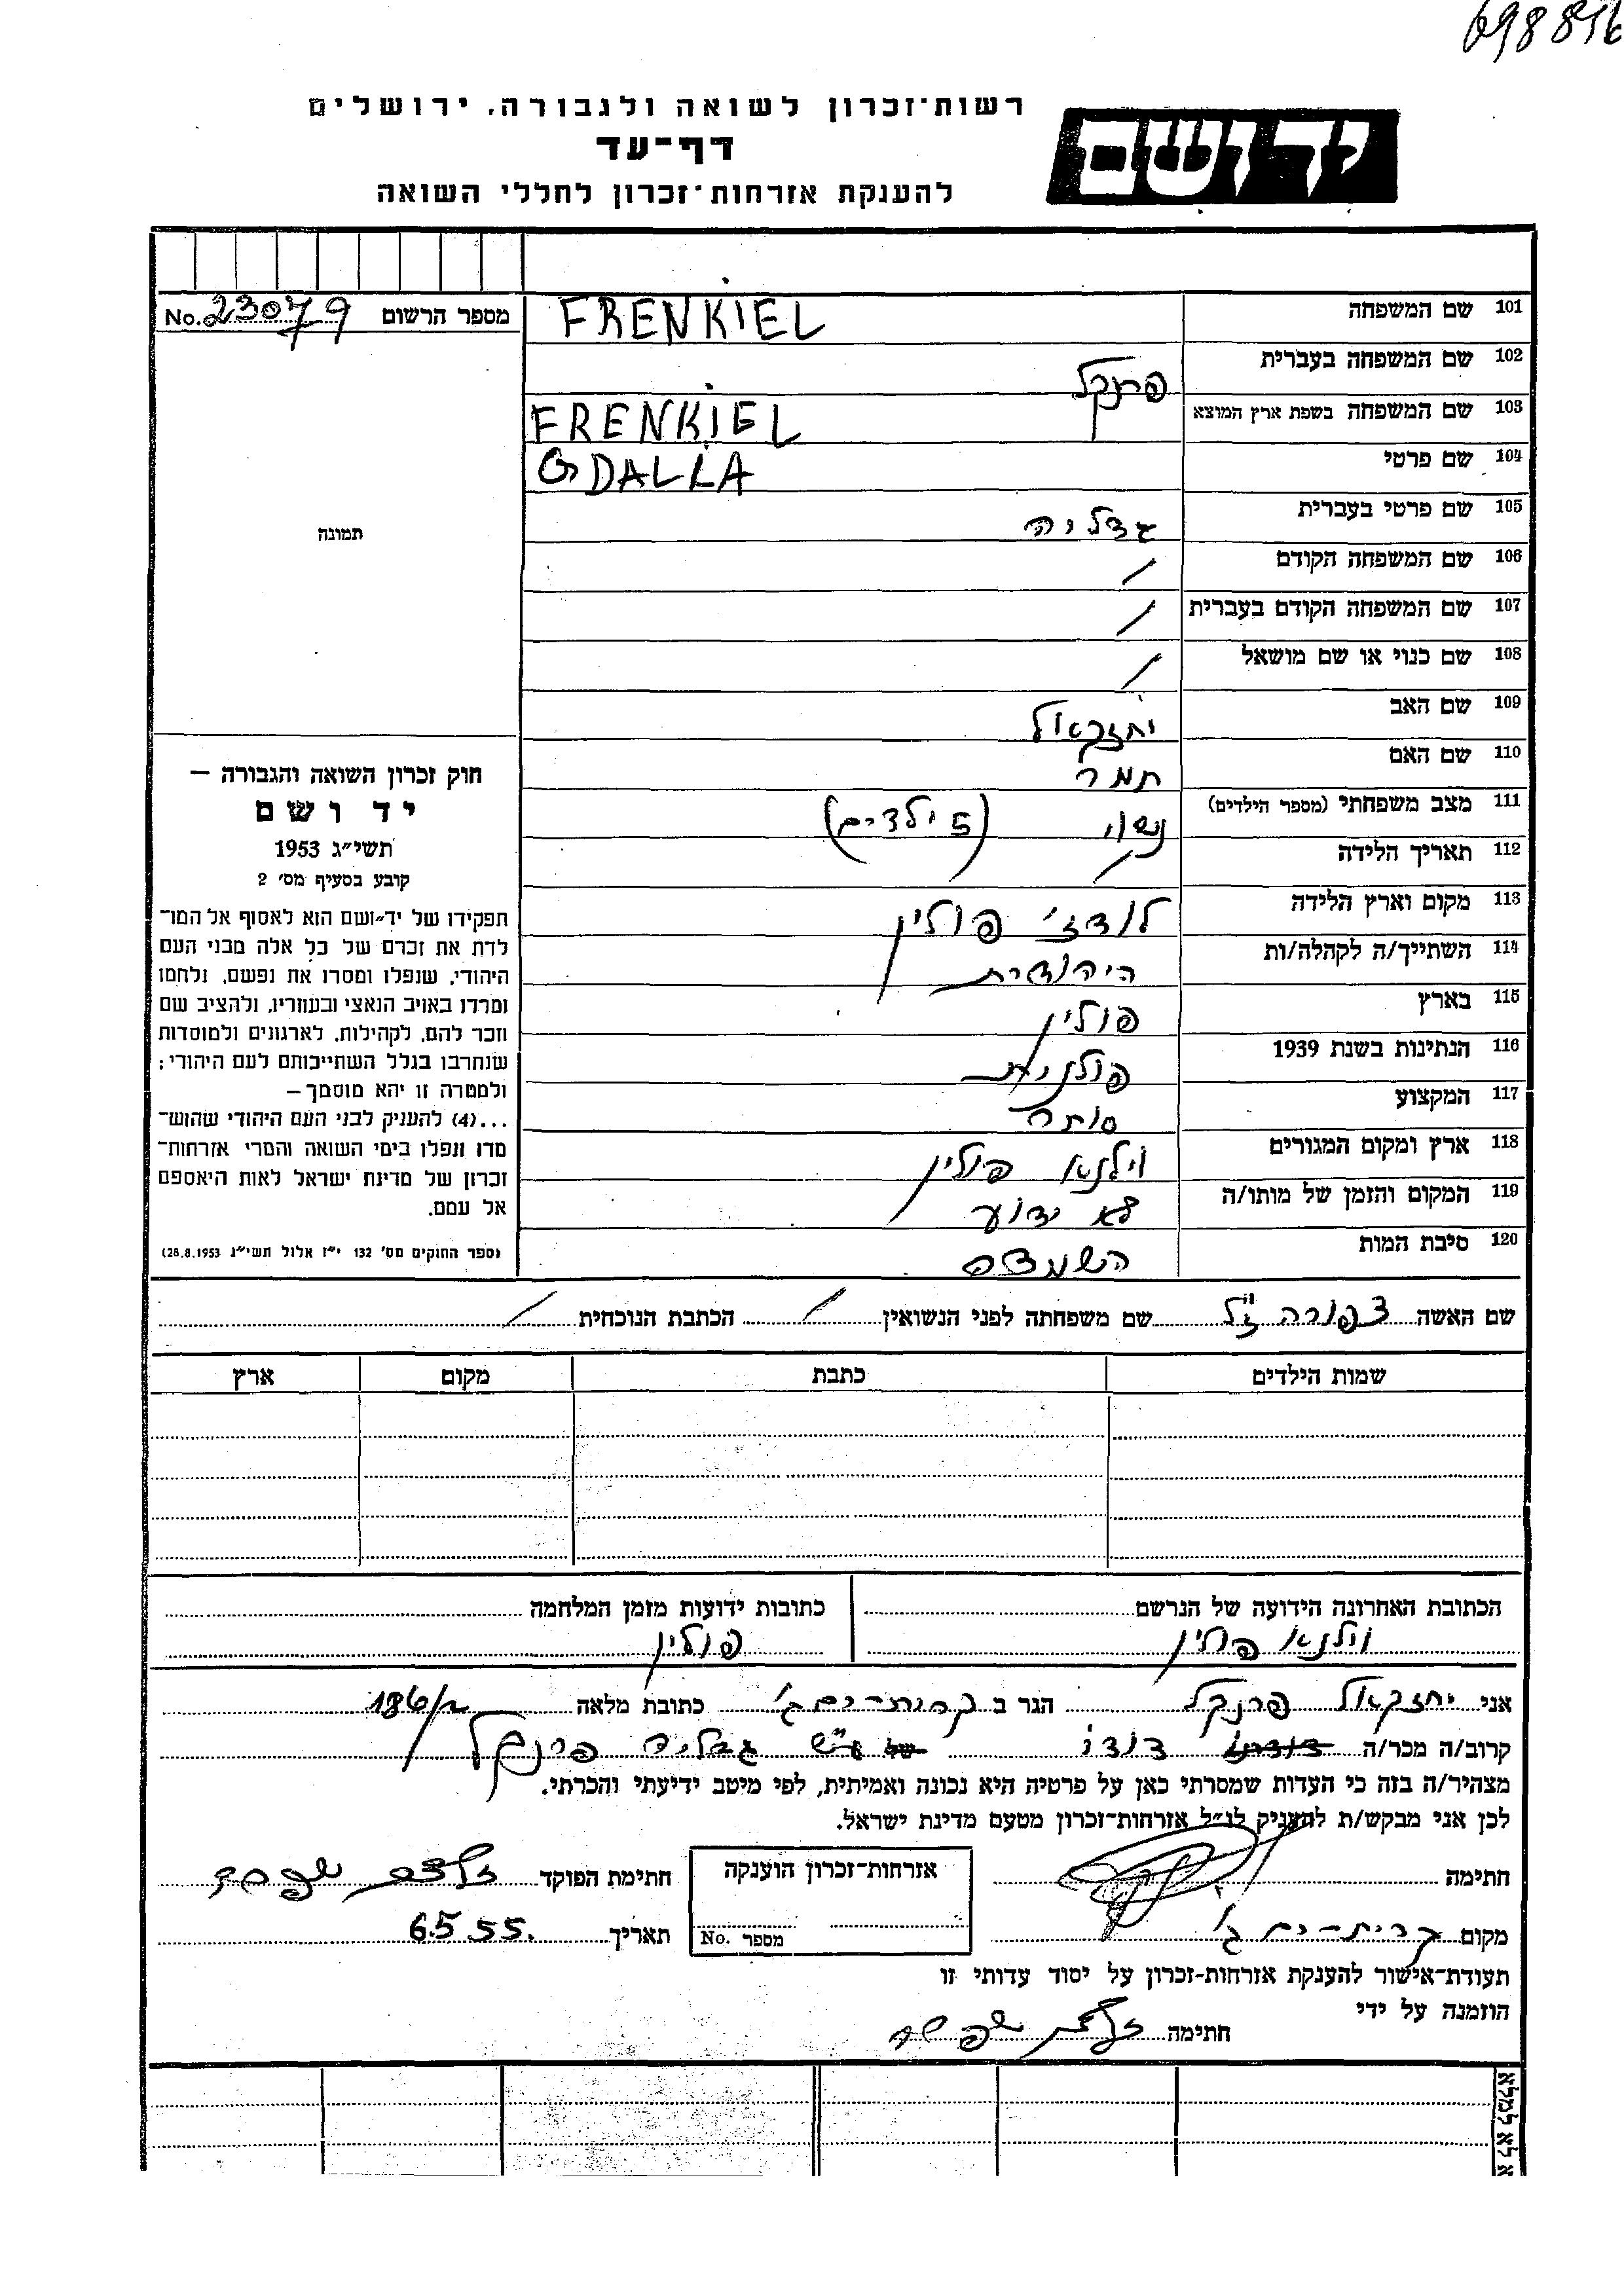 698816
רשות־זכרון לשואה ולגבורה, ירושלים
דף־עד
להענקת אזרחות־זכרון לחללי השואה
יד ושם
מספר הרשום No. 23079
101 שם המשפחה FRENKIEL
102 שם המשפחה בעברית פרנקל
103 שם המשפחה בשפת ארץ המוצא FRENKIEL
104 שם פרטי GDALLA
105 שם פרטי בעברית גדליה
106 שם המשפחה הקודם /
107 שם המשפחה הקודם בעברית /
108 שם כנוי או שם מושאל /
109 שם האב יחזקאל
110 שם האם תמר
111 מצב משפחתי (מספר הילדים) נשוי (5 ילדים)
112 תאריך הלידה /
113 מקום וארץ הלידה לודז' פולין
114 השתייך/ה לקהלה/ות היהודית
115 בארץ פולין
116 הנתינות בשנת 1939 פולנית
117 המקצוע סוחר
118 ארץ ומקום המגורים וילנא פולין
119 המקום והזמן של מותו/ה לא ידוע
120 סיבת המות השמדה
תמונה
חוק זכרון השואה והגבורה —
יד ושם
תשי״ג 1953
קובע בסעיף מס׳ 2
תפקידו של יד־ושם הוא לאסוף אל המו־
לדת את זכרם של כל אלה מבני העם
היהודי, שנפלו ומסרו את נפשם, נלחמו
ומרדו באויב הנאצי ובעוזריו, ולהציב שם
וזכר להם, לקהילות, לארגונים ולמוסדות
שנחרבו בגלל השתייכותם לעם היהודי;
ולמטרה זו יהא מוסמך—
...(4) להעניק לבני העם היהודי שהוש־
מדו ונפלו בימי השואה והמרי אזרחות־
זכרון של מדינת ישראל לאות היאספם
אל עמם.
(ספר החוקים מס׳ 132 י״ז אלול תשי״ג 28.8.1953)
שם האשה צפורה ז"ל שם משפחתה לפני הנשואין / הכתבת הנוכחית /
שמות הילדים כתבת מקום ארץ
הכתובת האחרונה הידועה של הנרשם כתובות ידועות מזמן המלחמה
וילנא פולין פולין
אני יחזקאל פרנקל הגר ב קרית-ים ג' כתובת מלאה 186/2
קרוב/ה מכר/ה דודו של גדליה פרנקל
מצהיר/ה בזה כי העדות שמסרתי כאן על פרטיה היא נכונה ואמיתית, לפי מיטב ידיעתי והכרתי.
לכן אני מבקש/ת להעניק לנ״ל אזרחות־זכרון מטעם מדינת ישראל.
חתימה אזרחות־זכרון הוענקה חתימת הפוקד
מקום קרית-ים ג' מספר No. תאריך 6.5.55.
תעודת־אישור להענקת אזרחות־זכרון על יסוד עדותי זו
הוזמנה על ידי
חתימה
נא לא למלא